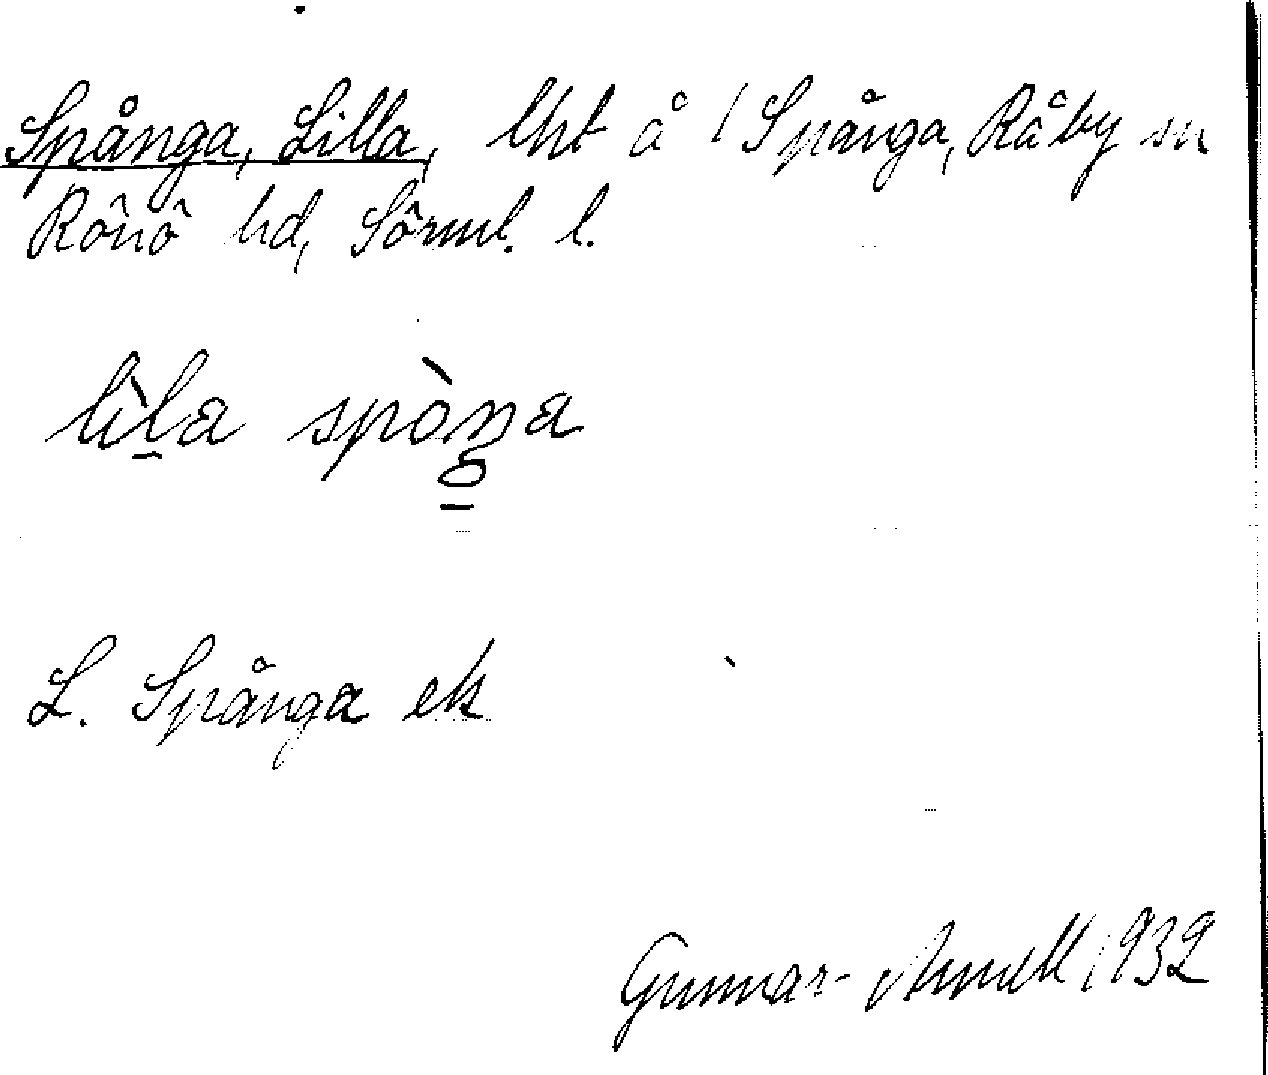 Spånga, Lilla, lht å 1 Spånga, Råby sn
Rönö hd, Sörml. l.
lìl̠a spòŋ̠a
L. Spånga ek
Gunnar Arnell 1932